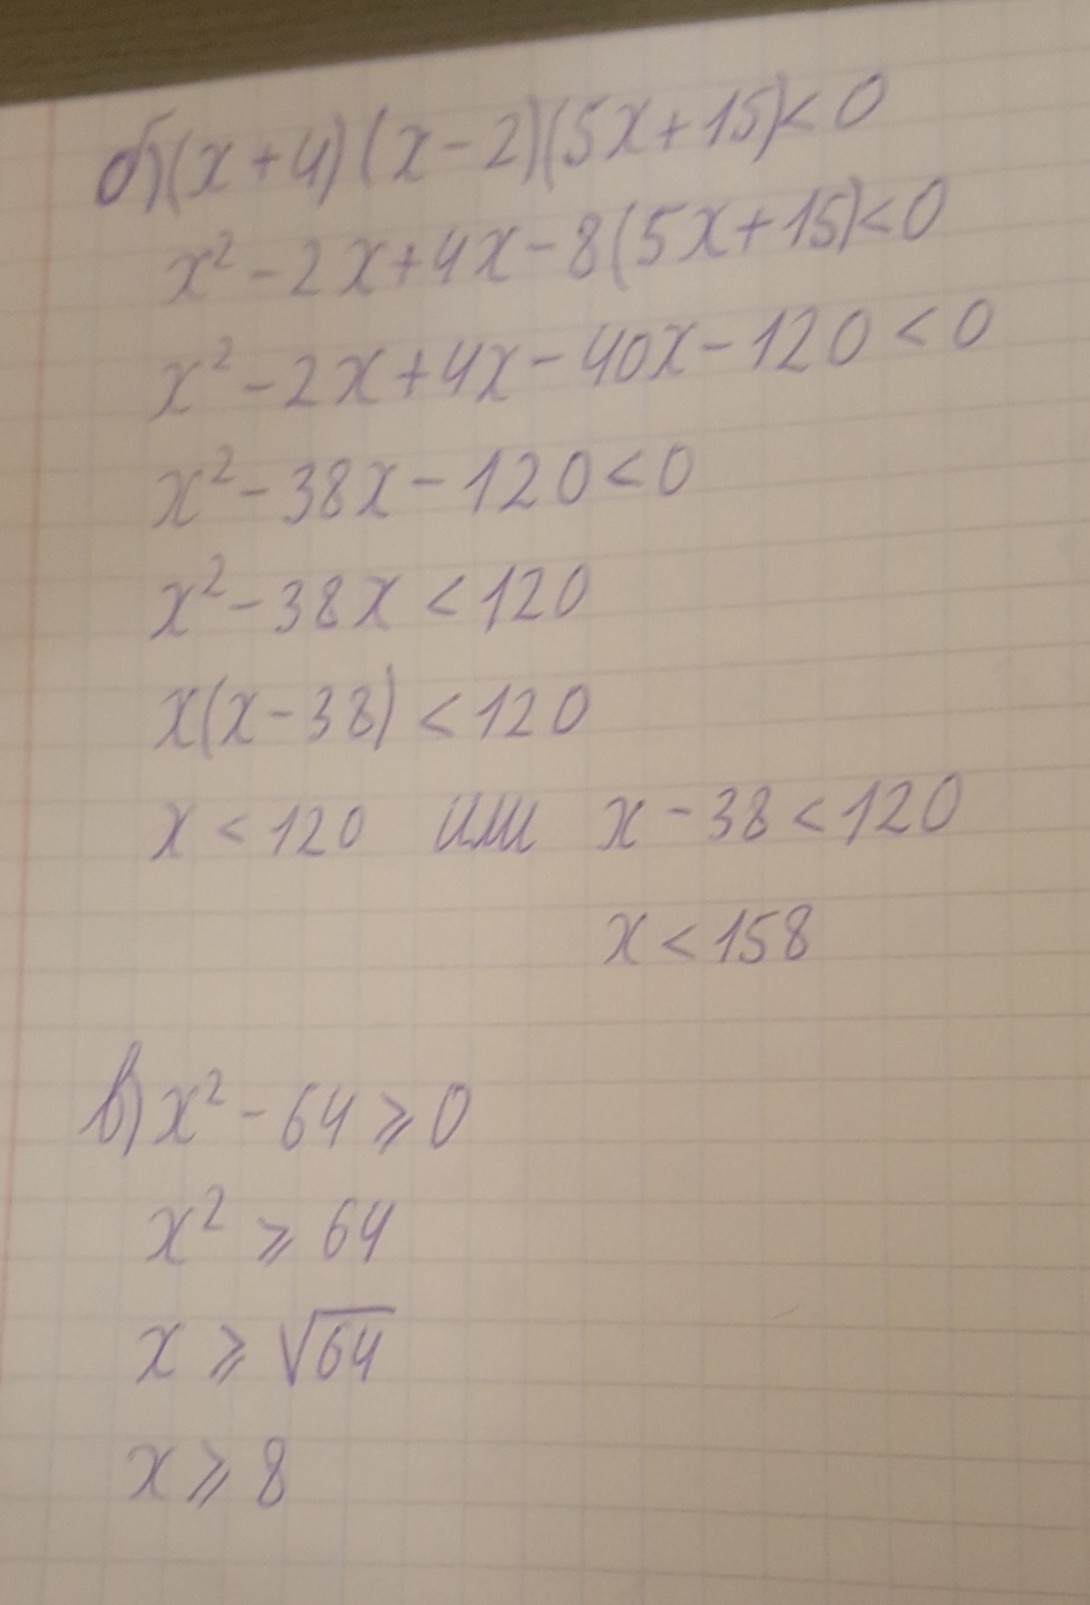 б)(x+4)(x-2)(5x+15)<0
x²-2x+4x-8(5x+15)<0
x²-2x+4x-40x-120<0
x²-38x-120<0
x²-38x<120
x(x-38)<120
x<120 или x-38<120
x<158
в)x²-64⩾0
x²⩾64
x⩾√64
x⩾8